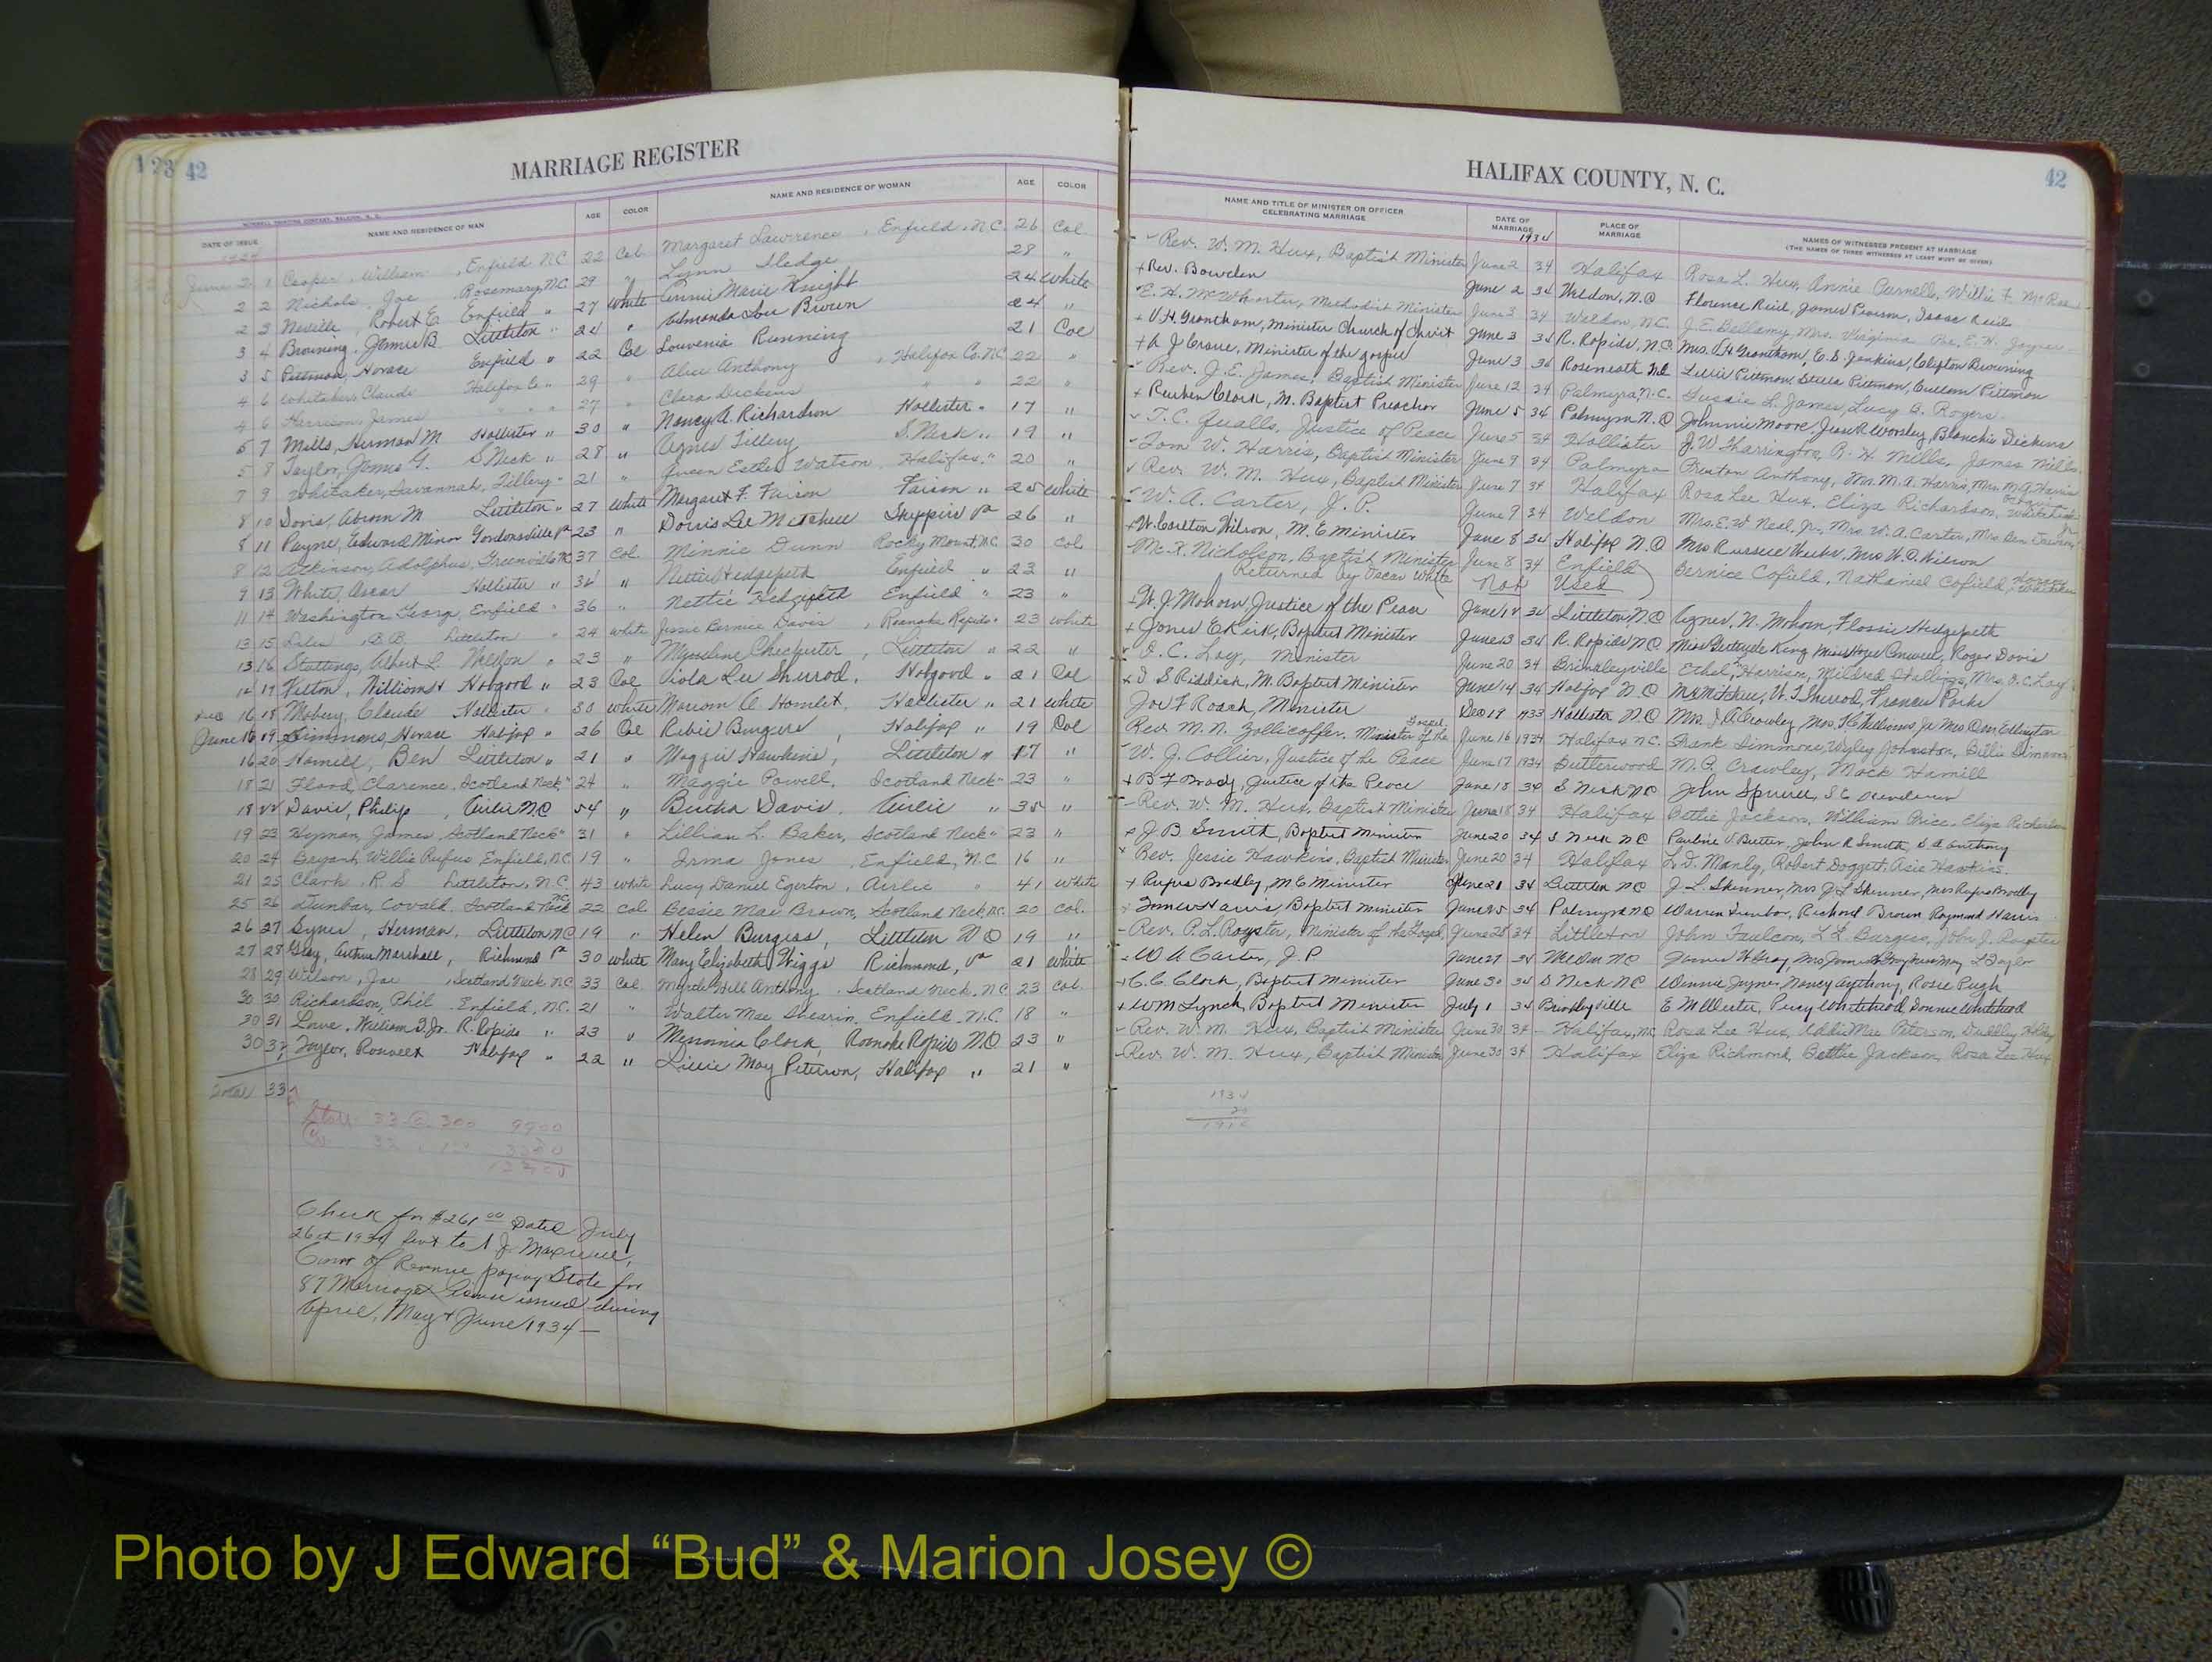 1 23 42
MARRIAGE REGISTER
DATE OF ISSUE NAME AND RESIDENCE OF MAN AGE COLOR NAME AND RESIDENCE OF WOMAN AGE COLOR
June 2 1 Cooper, William, Enfield N.C. 22 Col Margaret Lawrence, Enfield, N.C. 26 Col
2 2 Nichols, Joe, Rosemary, N.C. 29 " Lynn Hedge 28 "
2 3 Neville, Robert E. Enfield " 27 White Annie Marie Knight 24 White
3 4 Browning, James B. Littleton " 24 " Amanda Lou Brown 24 "
3 5 Pittman, Horace Enfield " 22 Col Louvenia Running 21 Col
4 6 Whitaker, Claude Halifax Co " 29 " Alice Anthony, Halifax Co. N.C. 22 "
4 6 Harrison, James " " " 27 " Clara Dickens " " 22 "
5 7 Mills, Herman M Hollister " 30 " Nancy A. Richardson Hollister " 17 "
5 8 Taylor, James G. S Neck " 28 " Agnes Tillery S. Neck " 19 "
7 9 Whitaker, Savannah, Tillery " 21 " Queen Esther Watson Halifax " 20 "
8 10 Davis, Abram M Littleton " 27 White Margaret F. Faison Faison " 25 White
8 11 Payne, Edward Minor Gordonsville Va 23 " Dorris Lee Mitchell Skippers Va 26 "
8 12 Atkinson, Adolphus, Greenville NC 37 Col. Minnie Dunn Rocky Mount, N.C. 30 Col.
9 13 White, Oscar Hollister " 34 " Nettie Hedgepeth Enfield " 23 "
11 14 Washington, George, Enfield " 36 " Nettie Hedgepeth Enfield " 23 "
13 15 B.B. Littleton " 24 White Jessie Bernice Davis, Roanoke Rapids " 23 White
13 16 Stallings, Albert L. Weldon " 23 " Littleton " 22 "
14 17 William H Hobgood " 23 Col Viola Lee Sherrod, Hobgood " 21 Col
Dec 16 18 Mabery, Claude Hollister " 30 White Marion A Hamlet, Hollister " 21 White
June 16 19 Simmons, Horace Halifax " 26 Col Rebie Burgess, Halifax " 19 Col
16 20 Hamill, Ben Littleton " 21 " Maggie Hawkins, Littleton " 17 "
18 21 Flood, Clarence, Scotland Neck " 24 " Maggie Powell, Scotland Neck " 23 "
18 22 Davis, Philip, Airlie N.C 54 " Bertha Davis, Airlie " 35 "
19 23 Hyman, James, Scotland Neck " 31 " Lillian L. Baker, Scotland Neck " 23 "
20 24 Bryant, Willie Rufus, Enfield, N.C. 19 " Irma Jones, Enfield, N.C 16 "
21 25 Clark, R S Littleton, N.C. 43 White Lucy Daniel Egerton, Airlie " 41 White
25 26 Dunbar, Scotland Neck N.C. 22 Col. Bessie Mae Brown, Scotland Neck, N.C. 20 Col.
26 27 Herman, Littleton N.C 19 " Helen Burgess, Littleton N C 19 "
27 28 Gray, Arthur Marshall, Richmond Va 30 White Mary Elizabeth Wiggs Richmond, Va 21 White
28 29 Wilson, Joe, Scotland Neck N.C 33 Col. Myrtle Hill Anthony, Scotland Neck, N.C 23 Col.
30 30 Richardson, Phil Enfield, N.C. 21 " Walter Mae Shearin, Enfield, N.C 18 "
30 31 William Jr. R. Rapids " 23 " Clark, Roanoke Rapids N.C. 23 "
30 32 Taylor, Halifax " 22 " Lillie May Peterson, Halifax " 21 "
Total 33
State 33 @ 300 9900
Co 33 3300
13200
Check for $261.00 Dated July
26th 1934 Sent to A J. Maxwell,
Com of Revenue paying State for
87 Marriage License issued during
April, May & June 1934 —
HALIFAX COUNTY, N. C.
42
NAME AND TITLE OF MINISTER OR OFFICER CELEBRATING MARRIAGE DATE OF MARRIAGE PLACE OF MARRIAGE NAMES OF WITNESSES PRESENT AT MARRIAGE
(THE NAMES OF THREE WITNESSES AT LEAST MUST BE GIVEN)
1934
Rev. W. M. Hux, Baptist Minister June 2 34 Halifax Rosa L. Hux, Annie Parnell, Willie F. McRae
Rev. Bowden June 2 34 Weldon, N.C Florence Reid, James Pearson, Isaac Reid
E. H. McWhorter, Methodist Minister June 3 34 Weldon, N.C. J. E. Bellamy, Mrs. Virginia E. H. Joyner
V. H. Grantham, Minister Church of Christ June 3 34 R. Rapids, N.C. Mrs. V. H Grantham, E. S. Jenkins, Clifton Browning
A J Crowe, Minister of the gospel June 3 34 Roseneath N.C Lillie Pittman, Stella Pittman, Cullom Pittman
Rev. J. E. James, Baptist Minister June 12 34 Palmyra, N.C. Gussie L. James, Lucy E. Rogers.
Reuben Clark, M. Baptist Preacher June 5 34 Palmyra N.C Johnnie Moore, Jesse R Worsley, Blanchie Dickens
T. C. Qualls, Justice of Peace June 5 34 Hollister J. W Tharrington, R. H. Mills, James Mills
Tom W. Harris, Baptist Minister June 9 34 Palmyra Preston Anthony, Mrs. M. A. Harris, Mrs. M. G. Harris
Rev. W. M. Hux, Baptist Minister June 7 34 Halifax Rosa Lee Hux, Eliza Richardson,
W. A. Carter, J. P. June 9 34 Weldon Mrs. E. W Neal, Jr., Mrs. W. A. Carter, Mrs. Ben
W. Carlton Wilson, M. E Minister June 8 34 Halifax N.C Mrs Russell Mrs W. C. Wilson
Nicholson, Baptist Minister June 8 34 Enfield Bernice Cofield, Nathaniel Cofield,
Returned by Oscar White Not Used
W. J. Mohorn, Justice of the Peace June 34 Littleton, N.C Agnes, N. Mohorn, Flossie Hedgepeth
James E Kirk, Baptist Minister June 13 34 R. Rapids N.C Miss Gertrude King Roger Davis
O. C. Loy, Minister June 20 34 Brinkleyville Ethel Harrison, Mildred Stallings, Mrs. O. C. Loy
S Riddick, M. Baptist Minister June 14 34 Halifax N C Sherrod, Frances Parks
Joe F Roach, Minister Dec 19 1933 Hollister N.C Mrs. J A Crowley, Mrs. Williams, Jr Mrs Ellington
Rev. M. N. Zollicoffer, Minister of the Gospel June 16 1934 Halifax N.C. Frank Simmons, Wyley Johnston, Billie Simmons
W. J. Collier, Justice of the Peace June 17 1934 Butterwood M. P. Crawley, Mack Hamill
Justice of the Peace June 18 34 S Neck N.C John Spruill,
Rev. W. M. Hux, Baptist Minister June 18 34 Halifax Bettie Jackson, William Price, Eliza Richardson
J. B Smith, Baptist Minister June 20 34 S Neck N C Pauline V. Butler, John R Smith, Anthony
Rev. Jessie Hawkins, Baptist Minister June 20 34 Halifax L. D. Manly, Robert Doggett, Acie Hawkins.
Rufus Bradly, M.E Minister June 21 34 Littleton N C J. L. Skinner, Mrs J. L Skinner, Mrs Rufus Bradly
James Harris Baptist Minister June 25 34 Palmyra N C Warren Dunbar, Richard Brown Raymond Harris
Rev. P. L. Royster, Minister of the Gospel, June 28 34 Littleton John Faulcon, L. L. Burgess, John J. Royster
W A Carter, J. P June 27 34 Weldon N C James H Gray, Taylor
C. C. Clark, Baptist Minister June 30 34 S Neck N C Winnie Joyner, Nancy Anthony, Rosie Pugh
W M Lynch, Baptist Minister July 1 34 Brinkleyville Percy Whitehead, Donnie Whitehead
Rev. W. M. Hux, Baptist Minister June 30 34 Halifax, N.C Rosa Lee Hux, Addie Mae Peterson, Duddley
Rev. W. M. Hux, Baptist Minister June 30 34 Halifax Eliza Richmond, Bettie Jackson, Rosa Lee Hux
1934
Photo by J Edward “Bud” & Marion Josey ©